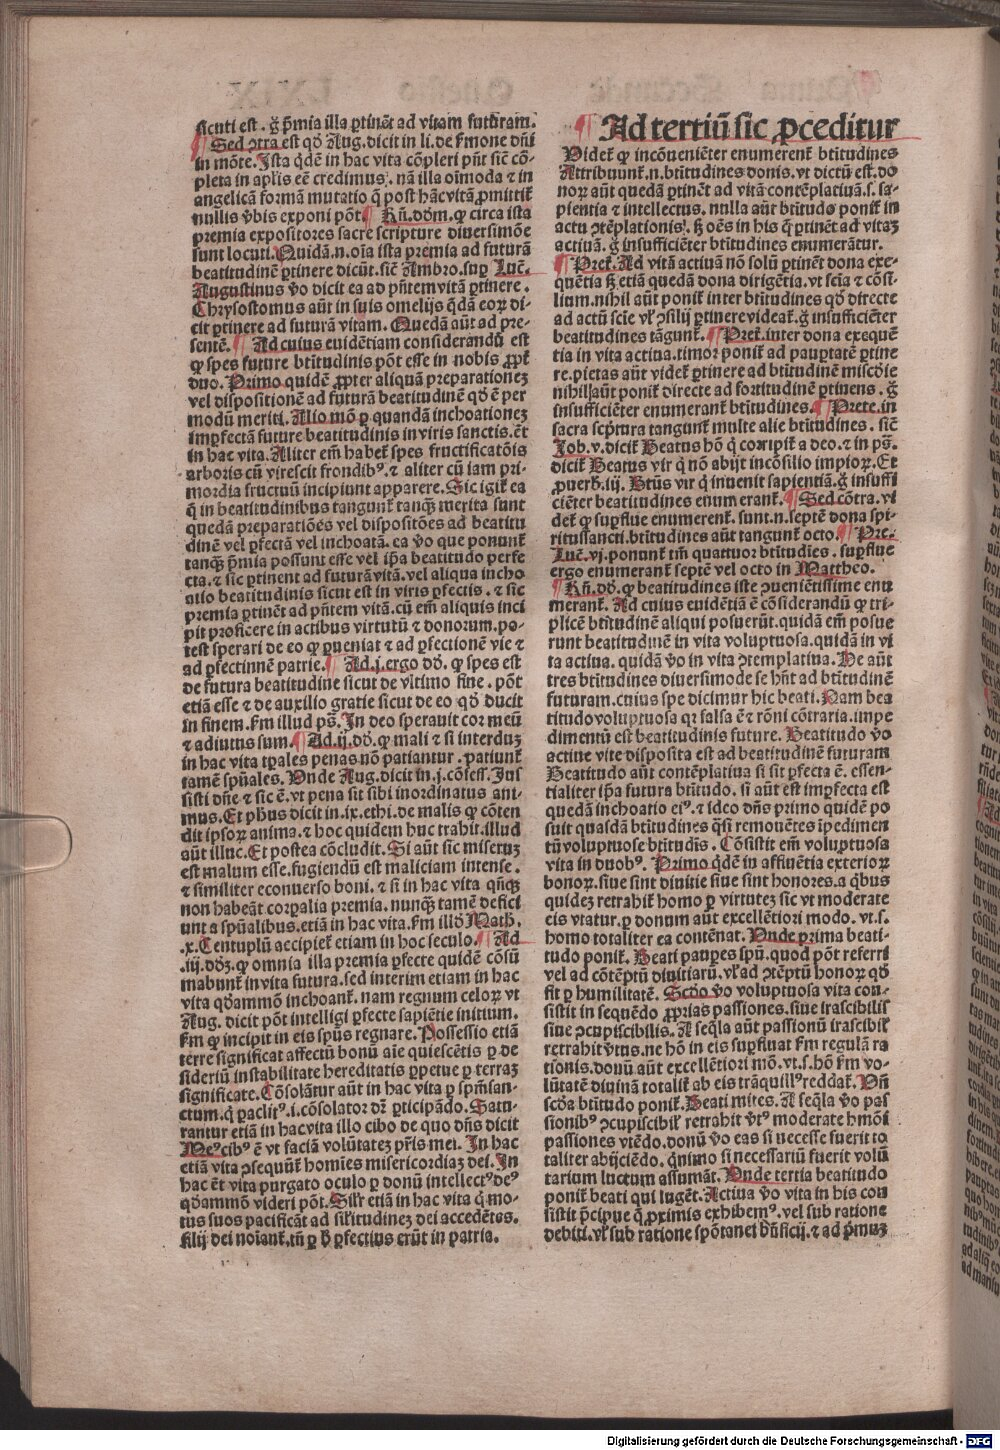 sicuti est. gͦ p̄mia illa ꝑtinēt ad vitam futuram.
¶ Sed ↄ̄tra est qd̓ Aug. dicit in li. de ẜmone dn̄i
in mōte. Ista qdē in hac vita cōpleri pn̄t sic̄ cō-
pleta in aplis eē credimus. nā illa oīmoda ⁊ in
angelicā formā mutatio q̄ post hācvitā ꝓmittit̄
nullis v̓bis exponi pōt ¶ Rn̄. dōm. ꝙ circa ista
premia expositores sacre scripture diuersimōe
sunt locuti. Quidā. n. oīa ista premia ad futurā
beatitudinē ꝑtinere dicūt. sic̄ Ambro. suꝑ Luc̄.
Augustinus v̓o dicit ea ad pn̄tem vitā ꝑtinere.
Chrysostomus aūt in suis omelijs q̄dā eoꝝ di-
cit ꝑtinere ad futurā vitam. Quedā aūt ad pre-
sentē. ¶ Ad cuius euidētiam considerandū est
ꝙ spes future btītudinis pōt esse in nobis ꝓpt̄
duo. Primo quidē ꝓpter aliquā preparationeꝫ
vel dispositionē ad futurā beatitudinē qd̓ ē per
modū meriti. Alio mō ꝑ quandā inchoationeꝫ
imꝑfectā future beatitudinis in viris sanctis. ēt
in hac vita. Aliter em̄ habet̄ spes fructificatōis
arboris cū virescit frondibꝰ. ⁊ aliter cū iam pri-
mordia fructuū incipiunt apparere. Sic igit̄ ea
q̄ in beatitudinibus tangunt̄ tanqꝫ merita sunt
quedā preparatiōes vel dispositōes ad beatitu
dinē vel ꝑfectā vel inchoatā. ea v̓o que ponunt̄
tanqꝫ p̄mia possunt esse vel ip̄a beatitudo perfe
cta. ⁊ sic ꝑtinent ad futurā vitā. vel aliqua incho
atio beatitudinis sicut est in viris ꝑfectis. ⁊ sic
premia ꝑtinēt ad pn̄tem vitā. cū em̄ aliquis inci
pit proficere in actibus virtutū ⁊ donorum. po-
test sperari de eo ꝙ ꝑueniat ⁊ ad ꝑfectionē vie ⁊
ad ꝑfectinnē patrie. ¶ Ad. j. ergo dd̓. ꝙ spes est
de futura beatitudine sicut de vltimo fine. pōt
etiā esse ⁊ de auxilio gratie sicut de eo qd̓ ducit
in finem. ẜm illud ps̄. In deo sperauit cor meū
⁊ adiutus sum. ¶ Ad. ij. dd̓. ꝙ mali ⁊ si interduꝫ
in hac vita tꝑales penas nō patiantur. patiunt̄
tamē spūales. Vnde Aug. dicit in. j. cōfess. Jus
sisti dn̄e ⁊ sic ē. vt pena sit sibi inordinatus ani-
mus. Et ph̄us dicit in. ix. ethi. de malis ꝙ cōten
dit ipsoꝝ anima. ⁊ hoc quidem huc trahit. illud
aūt illuc. Et postea cōcludit. Si aūt sic miseruꝫ
est malum esse. fugiendū est maliciam intense.
⁊ similiter econuerso boni. ⁊ si in hac vita qn̄qꝫ
non habeāt corꝑalia premia. nunqꝫ tamē defici
unt a spūalibus. etiā in hac vita. ẜm illd̓ Math.
.x. Centuplū accipiet̄ etiam in hoc seculo. ¶ Ad
.iij. dd̓ꝫ. ꝙ omnia illa premia ꝑfecte quidē cōsū
mabunt̄ in vita futura. sed interim etiam in hac
vita qd̓ammō inchoant̄. nam regnum celoꝝ vt
Aug. dicit pōt intelligi ꝑfecte sapiētie initium.
ẜm ꝙ incipit in eis spūs regnare. Possessio etiā
terre significat affectū bonū aīe quiescētis ꝑ de
sideriū in stabilitate hereditatis ꝑpetue ꝑ terraꝫ
significate. Cōsolātur aūt in hac vita ꝑ spm̄san-
ctum. q̄ paclitꝰ. i. cōsolator dr̄ ꝑticipādo. Satu-
rantur etiā in hacvita illo cibo de quo dn̄s dicit
Meꝰcibꝰ ē vt faciā volūtateꝫ pr̄is mei. In hac
etiā vita ↄsequūt̄ homīes misericordiaꝫ dei. In
hac ēt vita purgato oculo ꝑ donū intellectꝰdeꝰ
qd̓ammō videri pōt. Silr̄ etiā in hac vita q̄ mo-
tus suos pacificāt ad sil̓itudineꝫ dei accedētes.
filij dei noīant̄. tn̄ ꝑ h̓ ꝑfectius erūt in patria.
¶ Ad tertiū sic ꝓceditur
Videt̄ ꝙ incōueniēter enumerent̄ btītudines
Attribuunt̄. n. btītudines donis. vt dictū est. do
noꝝ aūt quedā ꝑtinēt ad vitā contēplatiuā. s. sa-
pientia ⁊ intellectus. nulla aūt btītudo ponit̄ in
actu ↄtēplationis. sꝫ oēs in his q̄ ꝑtinēt ad vitaꝫ
actiuā. gͦ insufficiēter btītudines enumerātur.
¶ Pret̄. Ad vitā actiuā nō solū ꝑtinēt dona exe-
quētia sꝫ etiā quedā dona dirigētia. vt scīa ⁊ cōsi-
lium. nihil aūt ponit̄ inter btītudines qd̓ directe
ad actū scīe vl̓ ↄsilij ꝑtinere videat̄. gͦ insufficiēter
beatitudines tāgunt̄. ¶ Pret̄. inter dona exequē
tia in vita actiua. timor ponit̄ ad pauꝑtatē ꝑtine
re. pietas aūt videt̄ ꝑtinere ad btītudinē miscd̓ie
nihil aūt ponit̄ directe ad fortitudinē ꝑtinens. gͦ
insufficiēter enumerant̄ btītudines. ¶ Prete. in
sacra scp̄tura tangunt̄ multe alie btītudines. sic̄
Job. v. dicit̄ Beatus hō q̄ corripit̄ a deo. ⁊ in ps̄.
dicit̄ Beatus vir q̄ nō abijt incōsilio impioꝝ. Et
ꝓuerb̓. iij. Btūs vir q̄ inuenit sapientiā. gͦ insuffi
ciēter beatitudines enumerant̄. ¶ Sed cōtra. vi
det̄ ꝙ suꝑflue enumerent̄. sunt. n. septē dona spi-
ritussancti. btītudines aūt tangunt̄ octo. ¶ Pre.
Luc̄. vj. ponunt̄ tm̄ quattuor btītudīes. suꝑflue
ergo enumerant̄ septē vel octo in Mattheo.
¶ Rn̄. dd̓. ꝙ beatitudines iste ↄuenientissime enu
merant̄. Ad cuius euidētiā ē cōsiderandū ꝙ tri-
plicē btītudinē aliqui posuerūt. quidā em̄ posue
runt beatitudinē in vita voluptuosa. quidā in vi
ta actiua. quidā v̓o in vita ↄtemplatiua. He aūt
tres btītudines diuersimode se hn̄t ad btītudinē
futuram. cuius spe dicimur hic beati. Nam bea
titudo voluptuosa qꝛ falsa ē ⁊ rōni cōtraria. impe
dimentū est beatitudinis future. Beatitudo v̓o
actiue vite disposita est ad beatitudinē futuram
Beatitudo aūt contēplatiua si sit ꝑfecta ē. essen-
tialiter ip̄a futura btītudo. si aūt est imꝑfecta est
quedā inchoatio eiꝰ. ⁊ ideo dn̄s primo quidē po
suit quasdā btītudines q̄si remouētes īpedimen
tū voluptuose btītudīs. Cōsistit em̄ voluptuosa
vita in duobꝰ. Primo qdē in affluētia exterioꝝ
bonoꝝ. siue sint diuitie siue sint honores. a qbus
quideꝫ retrahit̄ homo ꝑ virtuteꝫ sic vt moderate
eis vtatur. ꝑ donum aūt excellētiori modo. vt. s.
homo totaliter ea contēnat. Vnde prima beati-
tudo ponit̄. Beati pauꝑes spū. quod pōt referri
vel ad cōtēptū diuitiarū. vl̓ ad ↄtēptū honoꝝ qd̓
fit ꝑ humilitatē. Scd̓o v̓o voluptuosa vita con-
sistit in sequēdo ꝓprias passiones. siue irascibilis
siue ↄcupiscibilis. A seq̄la aūt passionū irascibil̓
retrahit v̓tus. ne hō in eis suꝑfluat ẜm regulā ra
tionis. donū aūt excellētiori mō. vt. s. hō ẜm vo-
lūtatē diuinā totalit̄ ab eis trāquillꝰreddat̄. Vn̄
scd̓a btītudo ponit̄. Beati mites. A seq̄la v̓o pas
sionibꝰ ↄcupiscibil̓ retrahit v̓tꝰ moderate hmōi
passiones vtēdo. donū v̓o eas si necesse fuerit to
taliter abijciēdo. q̄nimo si necessariū fuerit volū
tarium luctum assumāt. Vnde tertia beatitudo
ponit̄ beati qui lugēt. Actiua v̓o vita in his con
sistit p̄cipue q̄ ꝓximis exhibemꝰ. vel sub ratione
debiti. vl̓ sub ratione spōtanei bn̄ficij. ⁊ ad p̄muꝫ
Digitalisierung gefördert durch die Deutsche Forschungsgemeinschaft - DFG